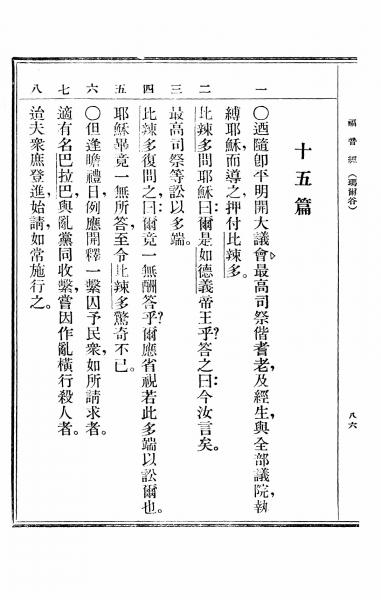 福音經（瑪爾谷）
八六
十五篇
一 〇迺隨卽平明開大議會、最高司祭偕耆老、及經生、與全部議院、執
縛耶穌、而導之、押付比辣多。
二 比辣多問耶穌曰：爾是如德義帝王乎？答之曰：今汝言矣。
三 最高司祭等訟以多端。
四 比辣多復問之、曰：爾竟一無酬答乎？爾應省視若此多端以訟爾也。
五 耶穌畢竟一無所答、至令比辣多驚奇不已。
六 〇但逢瞻禮日、例應開釋一繫囚予民衆、如所請求者。
七 適有名巴拉巴、與亂黨同收繫、嘗因作亂橫行殺人者。
八 迨夫衆庶登進、始請如常施行之。